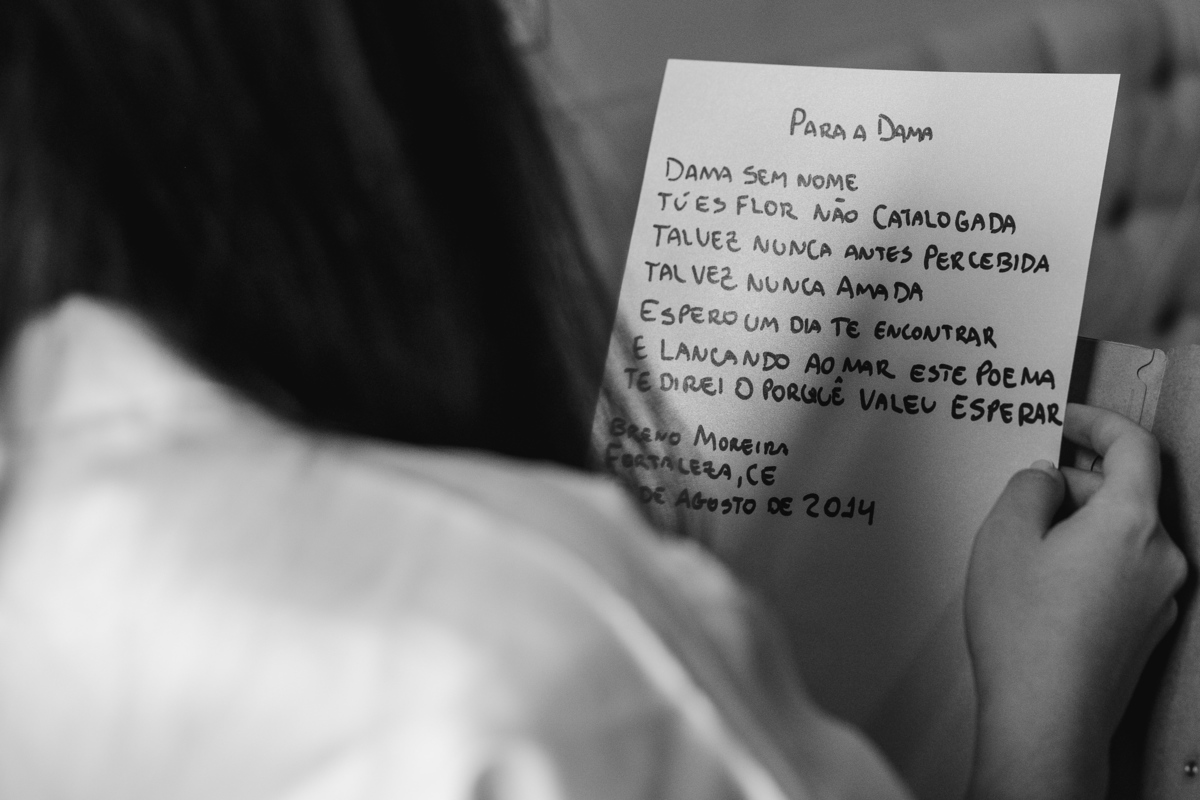 PARA A DAMA
DAMA SEM NOME
TÚ ES FLOR NÃO CATALOGADA
TALVEZ NUNCA ANTES PERCEBIDA
TALVEZ NUNCA AMADA
ESPERO UM DIA TE ENCONTRAR
E LANCANDO AO MAR ESTE POEMA
TE DIREI O PORQUÊ VALEU ESPERAR
BRENO MOREIRA
FORTALEZA, CE
DE AGOSTO DE 2014